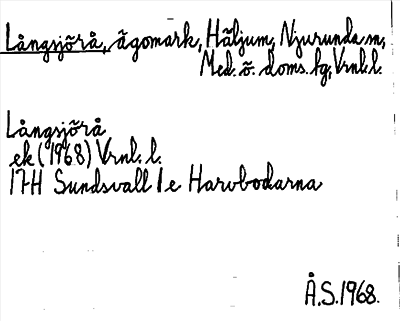 Långsjörå, ägomark, Häljum, Njurunda sn,
Med. ö. doms. hg, Vrnl. l.
Långsjörå
ek (1968) Vrnl. l.
17H Sundsvall 1 e Harvbodarna
Å.S. 1968.